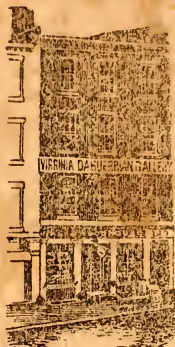 VIRGINIA DAGUERREAN GALLERY